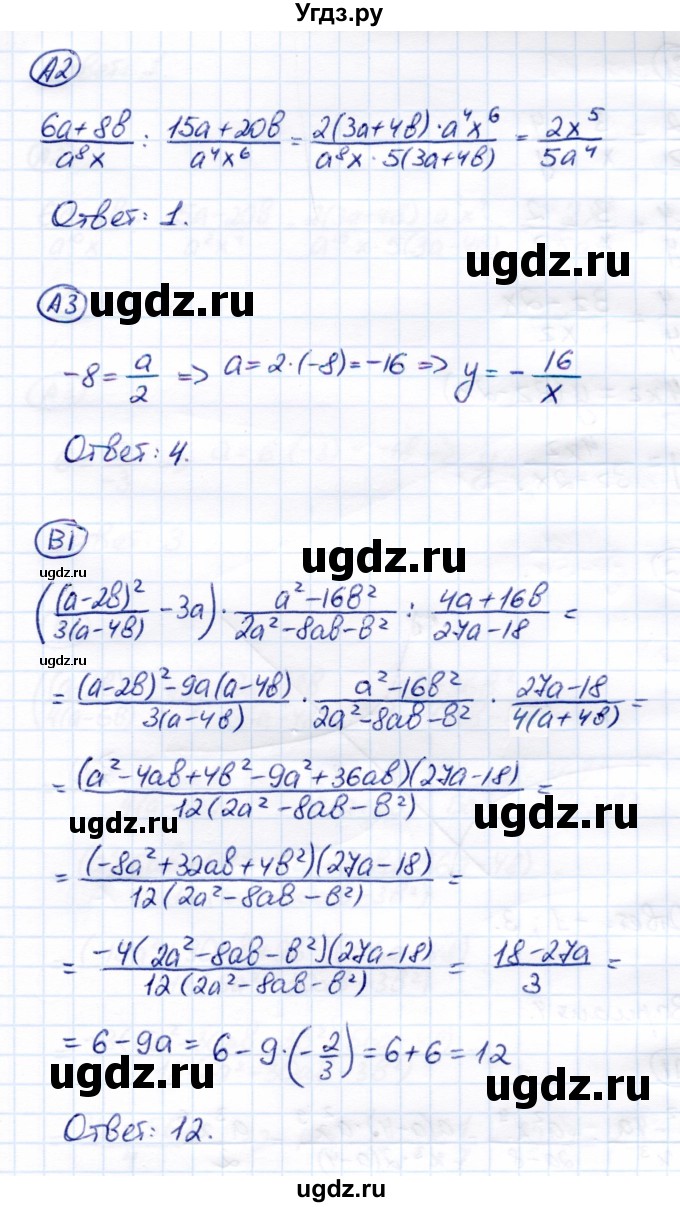 Угдз.ру
А2
(6a+8b)/(a⁸x) : (15a+20b)/(a⁴x⁶) = (2(3a+4b)·a⁴x⁶)/(a⁸x·5(3a+4b)) = 2x⁵/5a⁴
Ответ: 1.
ugdz.ru
А3 ugdz.ru
-8 = a/2 => a = 2·(-8) = -16 => y = -16/x
Ответ: 4.
В1
ugdz.ru
ugdz.ru
((a-2b)²/(3(a-4b)) - 3a) · (a²-16b²)/(2a²-8ab-b²) : (4a+16b)/(27a-18) =
ugdz.ru
= ((a-2b)²-9a(a-4b))/(3(a-4b)) · (a²-16b²)/(2a²-8ab-b²) · (27a-18)/(4(a+4b)) =
= ((a²-4ab+4b²-9a²+36ab)(27a-18))/(12(2a²-8ab-b²)) =
ugdz.ru
ugdz.ru
= ((-8a²+32ab+4b²)(27a-18))/(12(2a²-8ab-b²)) =
= (-4(2a²-8ab-b²)(27a-18))/(12(2a²-8ab-b²)) = (18-27a)/3 =
= 6-9a = 6-9·(-2/3) = 6+6 = 12
ugdz.ru
ugdz.ru
Ответ: 12.
ugdz.ru